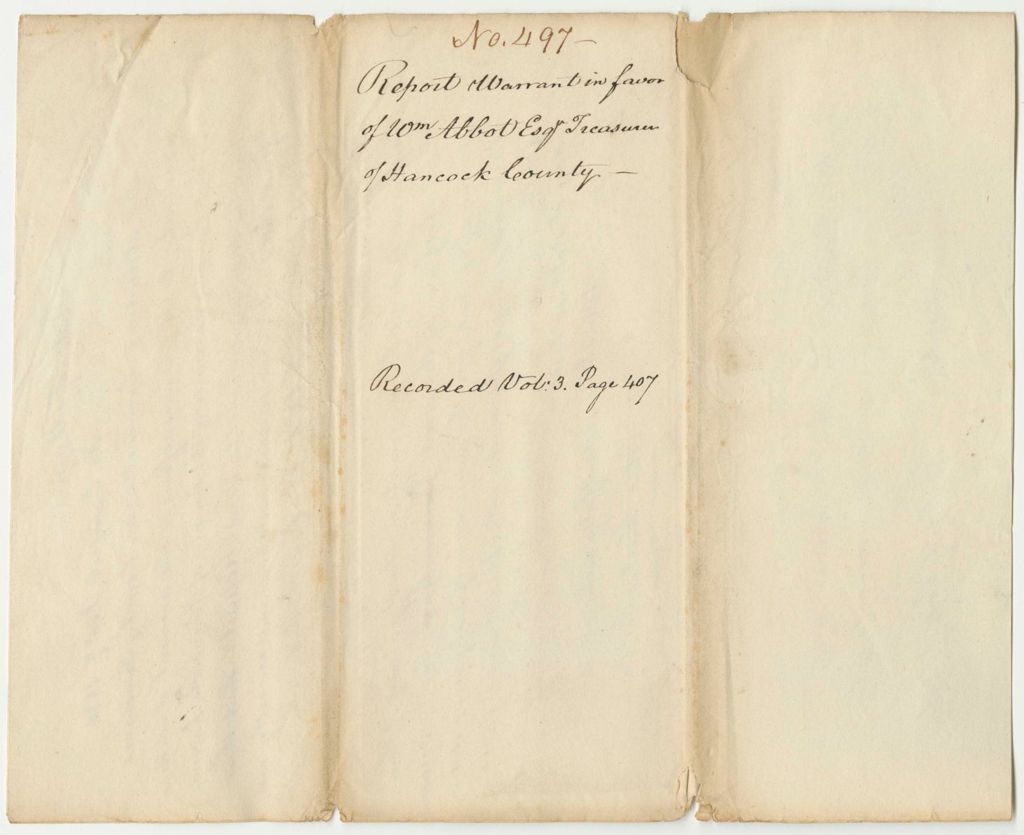 No. 497-
Report Warrant in favor
of Wm Abbot Esqr Treasurer
of Hancock County. -
Recorded Vol: 3. Page 407